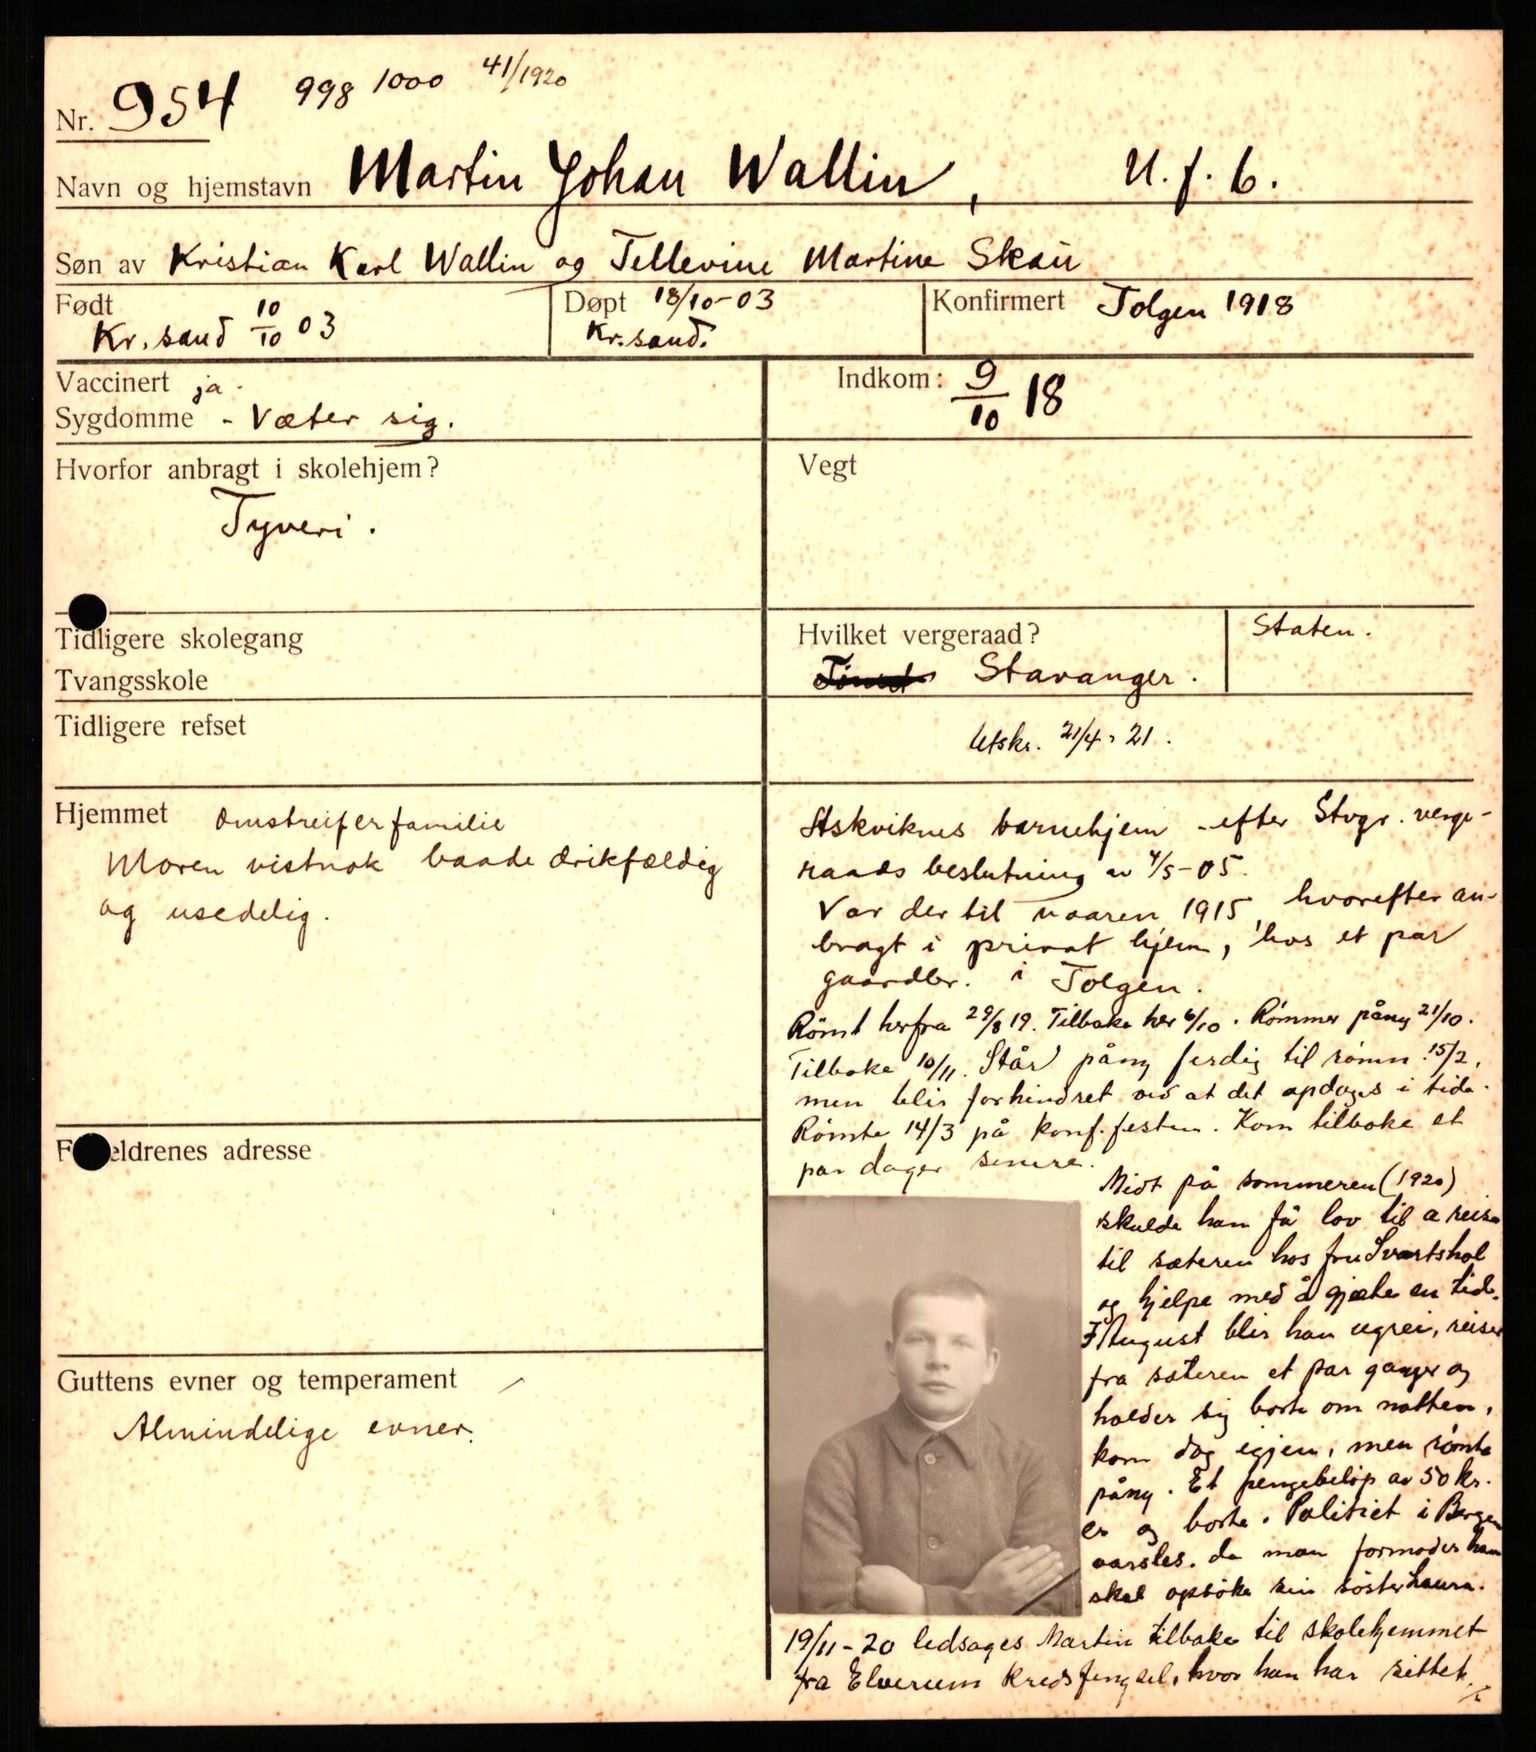 Nr. 954 998 1000 41/1920
Navn og hjemstavn Martin Johan Wallin, U. f. b.
Søn av Kristian Karl Wallin og Tellevine Martine Skau
Født 10/10 03 Kr. sand
Døpt 18/10-03 Kr. sand.
Konfirmert Tolgen 1918
Vaccinert ja.
Sygdomme - Væter sig.
Indkom: 9/10 18
Hvorfor anbragt i skolehjem?
Tyveri.
Vegt
Tidligere skolegang
Tvangsskole
Hvilket vergeraad?
Stavanger.
Staten.
Tidligere refset
Utskr. 21/4 - 21.
Hjemmet Omstreiferfamilie
Moren vistnok baade drikfældig
og usedelig.
Foreldrenes adresse
Guttens evner og temperament
Almindelige evner.
barnehjem - efter Stvgr. verge-
raads beslutning av 4/5-05.
Var der til vaaren 1915, hvorefter an-
bragt i privat hjem, hos et par
gaardbr. i Tolgen.
Rømt herfra 29/8 19. Tilbake her 6/10. Rømmer påny 21/10.
Tilbake 10/11. Står påny ferdig til rømn. 15/2,
men blir forhindret ved at det opdages i tide.
Rømte 14/3 på konf.festen. Kom tilbake et
par dager senere.
Midt på sommeren (1920)
skulde han få lov til a reise
til sæteren hos fru Svartshol
og hjelpe med å gjæte en tid.
I August blir han ugrei, reiser
fra sæteren et par ganger og
holder sig borte om natten,
kom dog igjen, men rømte
påny. Et pengebeløp av 50 kr.
er og borte. Politiet i Bergen
varsles. da man formoder han
skal opsøke sin søster Laura.
19/11-20 ledsages Martin tilbake til skolehjemmet
fra Elverum Kredsfengsel, hvor han har sittet.